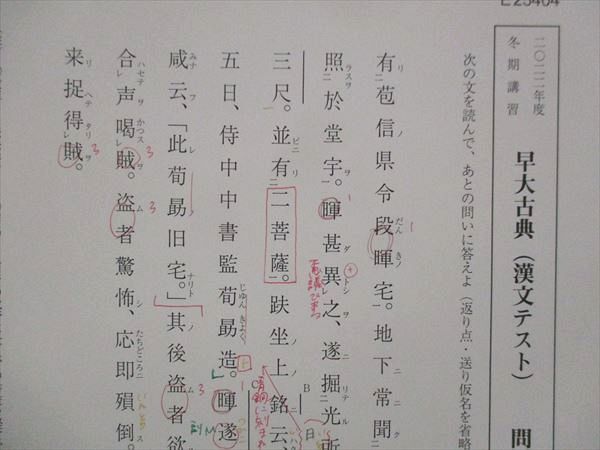 二〇二二年度
冬期講習
早大古典（漢文テスト）
問
次の文を読んで、あとの問いに答えよ（返り点・送り仮名を省略
有苞信県令段暉宅。地下常聞
照於堂宇。暉甚異之、遂掘光所
三尺。並有二菩薩。趺坐上銘云、
五日、侍中中書監荀勗造。」暉遂
咸云、「此荀勗旧宅。」其後盗者欲
合声喝賊。盗者驚怖、応即殞倒。
来捉得賊。